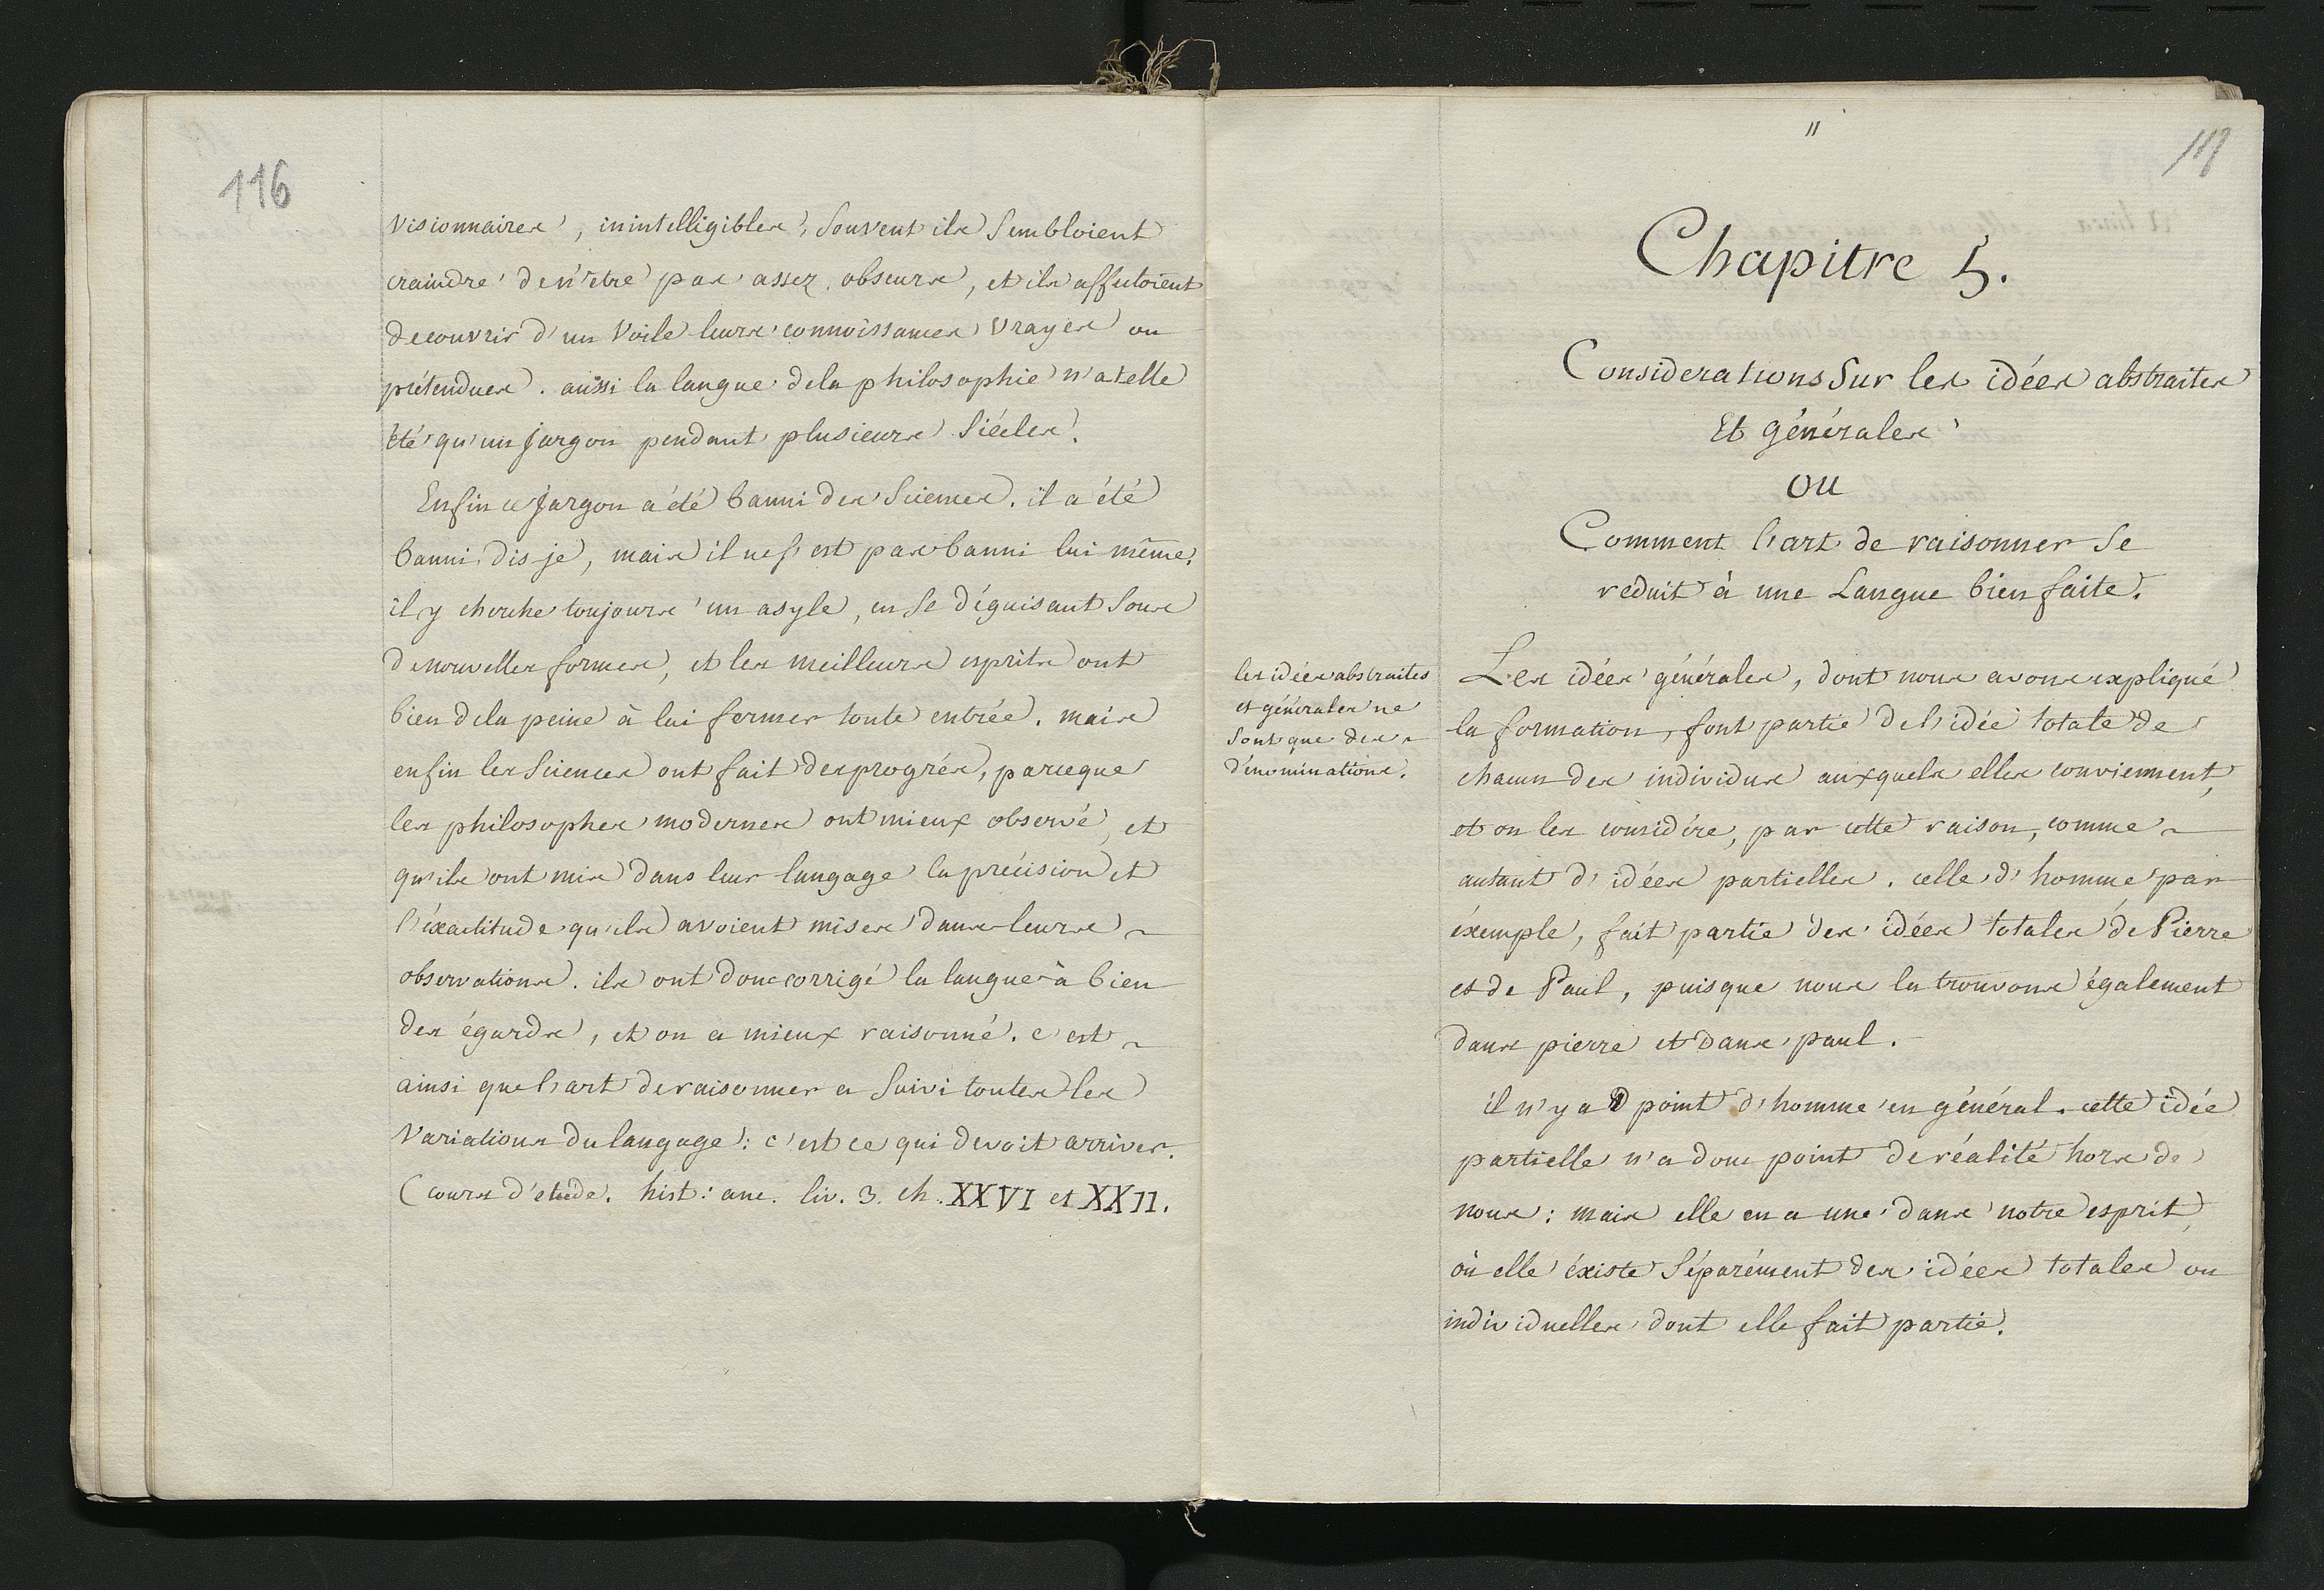 116
visionnaires, inintelligibles, souvent ils sembloient
craindre de n'être pas assez obscurs, et ils affectoient
de couvrir d'un voile leurs connoissances vrayes ou
prétendues. aussi la langue de la philosophie n'a telle
été qu'un jargon pendant plusieurs siécles.
Enfin ce jargon a été banni des sciences. il a été
banni, dis-je, mais il ne s'est pas banni lui même.
il y cherche toujours un asyle, en se déguisant sous
de nouvelles formes, et les meilleurs esprits ont
bien de la peine à lui fermer toute entrée. mais
enfin les sciences ont fait des progrés, parceque
les philosophes modernes ont mieux observé, et
qu'ils ont mis dans leur langage la précision et
l'éxactitude qu'ils avoient mises dans leurs
observations. ils ont donc corrigé la langue à bien
des égards, et on a mieux raisonné. c'est
ainsi que l'art de raisonner a suivi toutes les
variations du langage: c'est ce qui devoit arriver.
(cours d'etude. hist: anc. liv. 3. ch. XXVI et XXII.
"
Chapitre 5.
Considerations sur les idées abstraites
Et générales
ou
Comment l'art de raisonner se
réduit à une Langue bien faite.
les idées abstraites
et générales ne
sont que des
dénominations.
Les idées générales, dont nous avons expliqué
la formation, font partie de l'idée totale de
chacun des individus auxquels elles conviennent,
et on les considére, par cette raison, comme
autant d'idées partielles. celle d'homme par
éxemple, fait partie des idées totales de Pierre
et de Paul, puisque nous la trouvons également
dans pierre et dans paul.
il n'y a point d'homme en général. cette idée
partielle n'a donc point de réalité hors de
nous: mais elle en a une dans notre esprit,
où elle éxiste séparément des idées totales ou
individuelles dont elle fait partie.